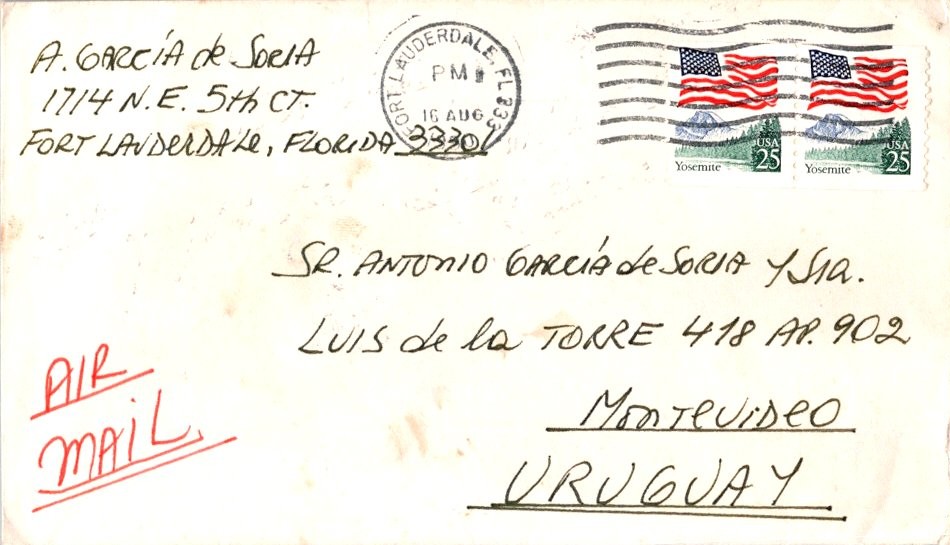 A. GARCÍA de SORIA
1714 N.E. 5th CT.
FORT LAUDERDALE, FLORIDA 33301
FORT LAUDERDALE, FL 333
PM
16 AUG
USA 25
Yosemite
USA 25
Yosemite
SR. ANTONIO GARCÍA de SORIA Y Sra.
LUIS de la TORRE 418 AP. 902
MONTEVIDEO
URUGUAY
AIR
MAIL